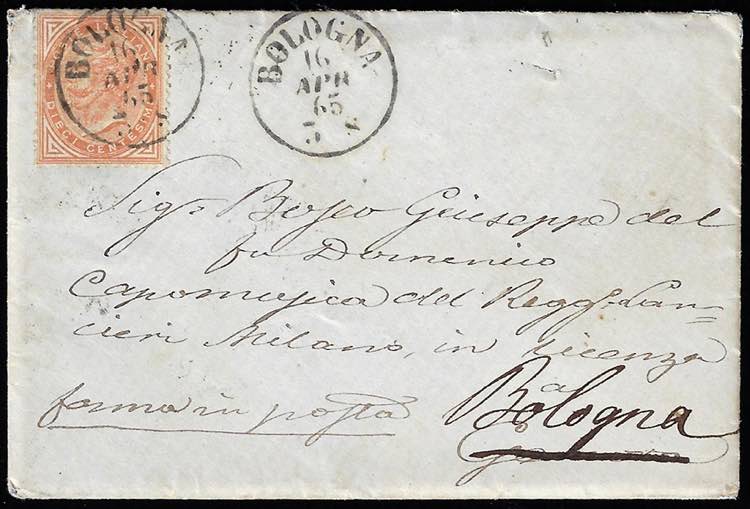 BOLOGNA
16
APR
65
3 S
DIECI CENTESIMI
BOLOGNA
16
APR
65
3 S
Sig.r Bosco Giuseppe del
fu Domenico
Capomusica del Regg. Lan=
cieri Milano, in licenza
a
ferma in posta Bologna